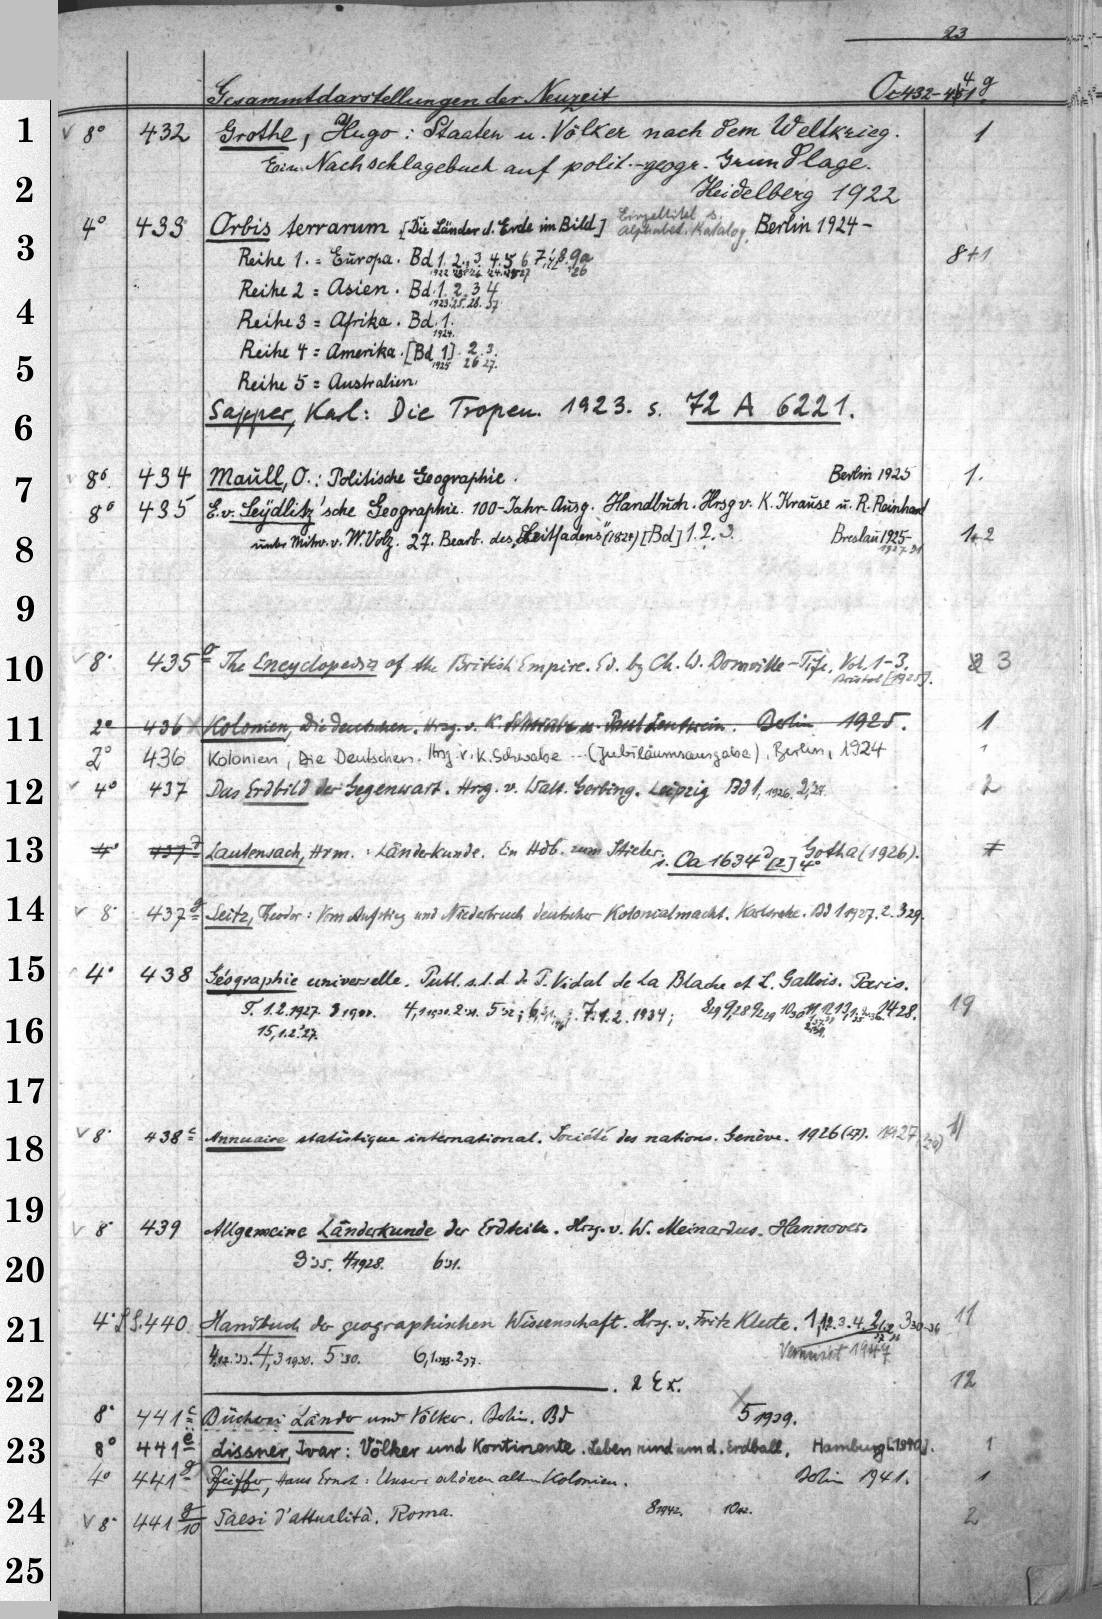 23
Gesammtdarstellungen der Neuzeit Oc 432-441 g
1 8° 432 Grothe, Hugo: Staaten u. Völker nach dem Weltkrieg. 1
Ein Nachschlagebuch auf polit.-geogr. Grundlage.
2 Heidelberg 1922
4° 433 Orbis terrarum [Die Länder d. Erde im Bild] Einzeltitel s. alphabet. Katalog. Berlin 1924-
3 Reihe 1. = Europa. Bd 1. 2. 3. 4. 5 6 7. 8. 9a 8+1
Reihe 2 = Asien. Bd. 1. 2. 3 4
1923. 25. 26. 37.
4 Reihe 3 = Afrika. Bd. 1.
1924.
Reihe 4 = Amerika. [Bd 1] 2. 3.
1925 26 27.
5 Reihe 5 = Australien.
6 Sapper, Karl: Die Tropen. 1923. s. 72 A 6221.
7 8° 434 Maull, O.: Politische Geographie. Berlin 1925 1.
8° 435 E. v. Seÿdlitz'sche Geographie. 100-Jahr-Ausg. Handbuch. Hrsg v. K. Krause u. R. Reinhard
8 unter Mitw. v. W. Volz. 27. Bearb. des „Leitfadens" (1824) [Bd] 1. 2. 3. Breslau 1925-
1927. 31
9
10 8° 435 The Encyclopedia of the British Empire. Ed. by Ch. W. Domville-Fife. Vol. 1-3. 3
Bristol [1925].
11 2° 436 Kolonien, Die deutschen. Hrsg. v. K. Schwabe u. Paul Leutwein. Berlin 1925. 1
2° 436 Kolonien, Die Deutschen. Hrsg. v. K. Schwabe ... (Jubiläumsausgabe). Berlin, 1924 1
12 4° 437 Das Erdbild der Gegenwart. Hrsg. v. Walt. Gerbing. Leipzig Bd 1, 1926. 2, 27. 2
13 4° 437 Lautensach, Hrm.: Länderkunde. Ein Hdb. zum Stieler. Gotha (1926).
s. Ca 1634 d [2] 4°
14 8° 437 g Seitz, Theodor: Vom Aufstieg und Niederbruch deutscher Kolonialmacht. Karlsruhe. Bd 1 1927. 2. 3 29.
15 4° 438 Géographie universelle. Publ. s. l. d. de P. Vidal de La Blache et L. Gallois. Paris.
T. 1. 2. 1927. 7, 1. 2. 1934; 19
16 15, 1. 2. '27.
17
18 8° 438 c Annuaire statistique international. Société des nations. Genève. 1926 (27). 1927
19 8° 439 Allgemeine Länderkunde der Erdteile. Hrsg. v. W. Meinardus. Hannover.
20 3 '25. 4 1928. 6 '31.
21 4° 440 Handbuch der geographischen Wissenschaft. Hrsg. v. Fritz Klute. 11
4, 3 1930. 5 '30. 6, 1. 33. 2 37. Vermisst 1947
22 2 Ex. 12
8° 441 c Bücherei Länder und Völker. Berlin. Bd 5 1939.
23 8° 441 e Lissner, Ivar: Völker und Kontinente. Leben rund um d. Erdball. Hamburg [1940]. 1
4° 441 g Pfeiffer, Hans Ernst: Unsere schönen alten Kolonien. Berlin 1941. 1
24 8° 441 g/10 Paesi d'attualità. Roma. 8 1942. 10 42. 2
25